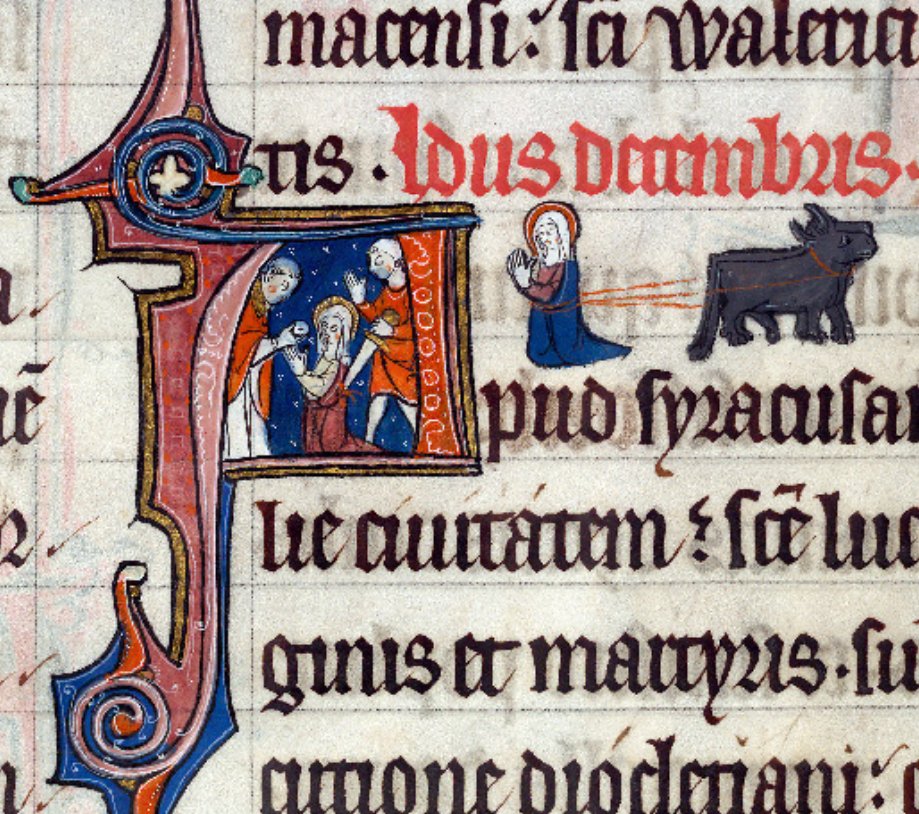 macensi: sci Walerici
tis. Idus decembris.
Apud syracusa
lie ciuitatem: sce luc
ginis et martyris. su
cutione diocletiani: